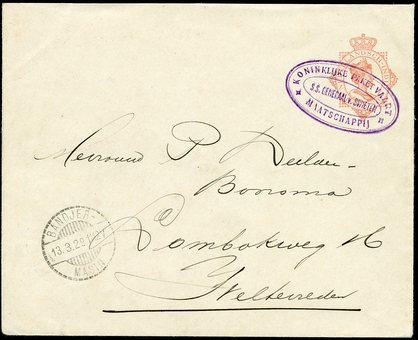 NEDERLANDSCH-INDIE
KONINKLIJKE PAKETVAART
S.S. GENERAAL v. SWIETEN
MAATSCHAPPIJ
Mevrouw P. Deelder-
Boorsma
Lombokweg 16
Weltevreden
BANDJER-
13.3.29
MASIN